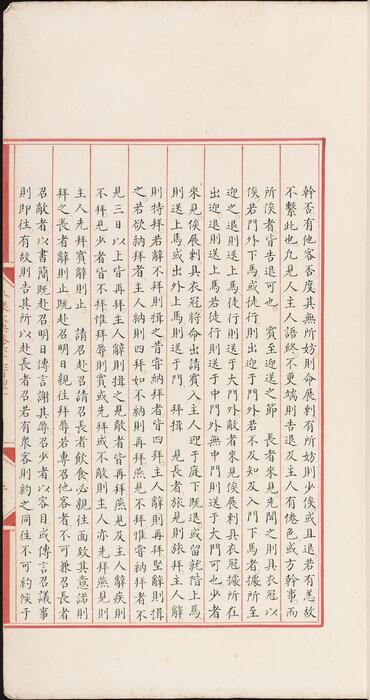 幹否有他客否度其無所妨則命展刺有所妨則少俟或且退若有恙故
不繫此也凡見人主人語終不更端則告退及主人有倦色或方幹事而
所俟者皆告退可也　賓至迎送之節　長者來見先聞之則具衣冠以
俟若門外下馬或徒行則出迎于門外若不及知及入門下馬者據所至
迎之退則送上馬徒行則送于大門外敵者來見俟展刺具衣冠據所在
出迎退則送上馬若徒行則送于中門外無中門則送于大門可也少者
來見俟展刺具衣冠將命出請賓入主人迎于庭下既退或留就階上馬
則送上馬或出外上馬則送于門　拜揖　見長者旅見則旅拜主人辭
則特拜若辭不拜則揖之昔嘗納拜者皆四拜主人辭則再拜堅辭則揖
之若欲納拜者主人納則四拜如不納則再拜燕見不拜惟嘗納拜者不
見三日以上皆再拜主人辭則揖之見敵者皆再拜燕見及主人辭疾則
不拜見少者皆不拜惟拜辱則賓或先拜或不敵則主人亦先拜燕見則
主人先拜賓辭則止　請召赴召請召長者飲食必親往面致其意諾則
拜之長者辭則止既赴召明日親往拜辱若專召他客者不可兼召長者
召敵者以書簡既赴召明日傳言謝其辱召少者以客目或傳言召議事
則即往有故則告其所以赴長者召若有衆客則約之同往不可約候于